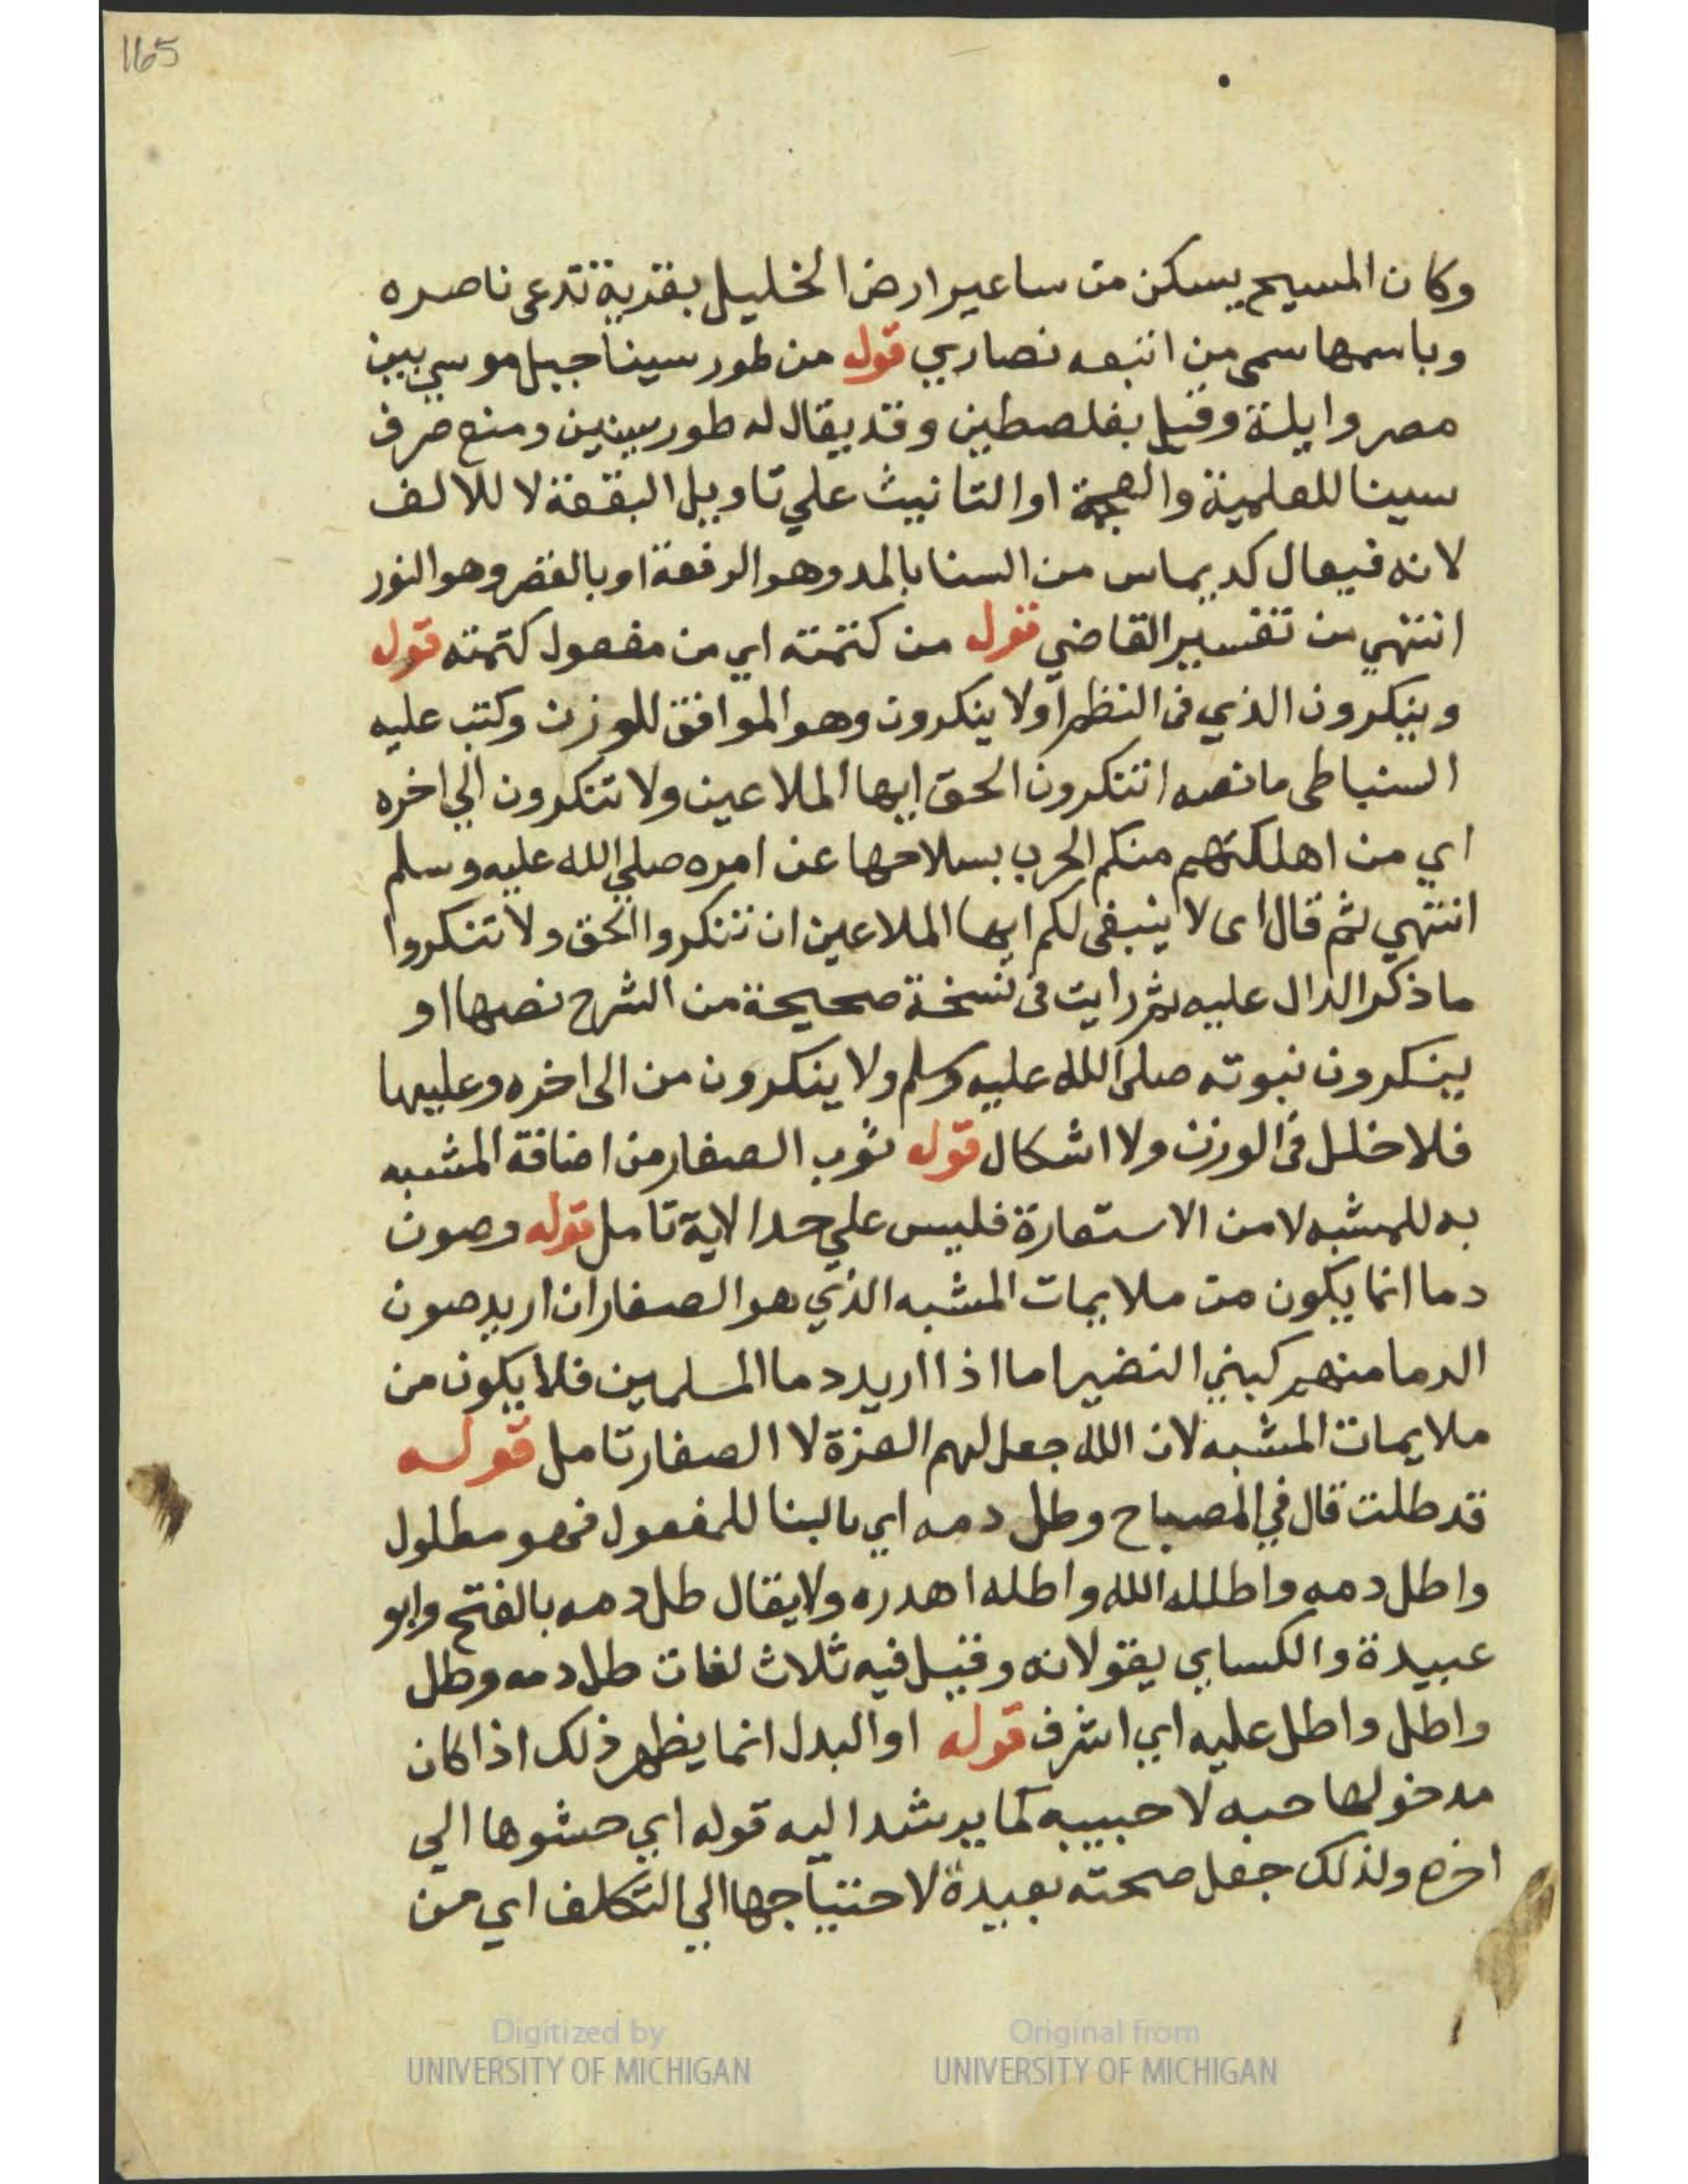 165
وكان المسيح يسكن من ساعير ارض الخليل بقرية تدعى ناصره
وباسمها سمى من اتبعه نصاري قوله من طور سينا جبل موسي بين
مصر وايلة وقيل بفلصطين وقد يقال له طور سينين ومنع صرف
سينا للعلمية والعجمة او التانيث علي تاويل البقعة لا للالف
لانه فيعال كديماس من السنا بالمد وهو الرفعة او بالقصر وهو النور
انتهي من تفسير القاضي قوله من كتمته اي من مفعول كتمته قوله
وينكرون الذي في النظم او لا ينكرون وهو الموافق للوزن وكتب عليه
السنباطى ما نصه اتنكرون الحق ايها الملاعين ولا تنكرون الي اخره
اي من اهلكتهم منكم الحرب بسلاحها عن امره صلي الله عليه وسلم
انتهي ثم قال اى لا ينبغى لكم ايها الملاعين ان تنكروا الحق ولا تنكروا
ما ذكر الدال عليه ثم رايت في نسخة صحيحة من الشرح نصها او
ينكرون نبوته صلى الله عليه وسلم ولا ينكرون من الى اخره وعليها
فلا خلل في الوزن ولا اشكال قوله ثوب الصغار من اضافة المشبه
به للمشبه لا من الاستعارة فليس علي حد الاية تامل قوله وصون
دما انما يكون من ملايمات المشبه الذي هو الصغار ان اريد صون
الدما منهم كبني النضير اما اذا اريد دما المسلمين فلا يكون من
ملايمات المشبه لان الله جعل لهم العزة لا الصغار تامل قوله
قد طلت قال في المصباح وطل دمه اي بالبنا للمفعول فهو مطلول
واطل دمه واطلله الله واطله اهدره ولا يقال طل دمه بالفتح وابو
عبيدة والكساي يقولانه وقيل فيه ثلاث لغات طل دمه وطل
واطل واطل عليه اي اشرف قوله او البدل انما يظهر ذلك اذا كان
مدخولها حبه لا حبيبه كما يرشد اليه قوله اي حشوها الي
اخره ولذلك جعل صحته بعيدة لاحتياجها الي التكلف اي من
Digitized by
UNIVERSITY OF MICHIGAN
Original from
UNIVERSITY OF MICHIGAN